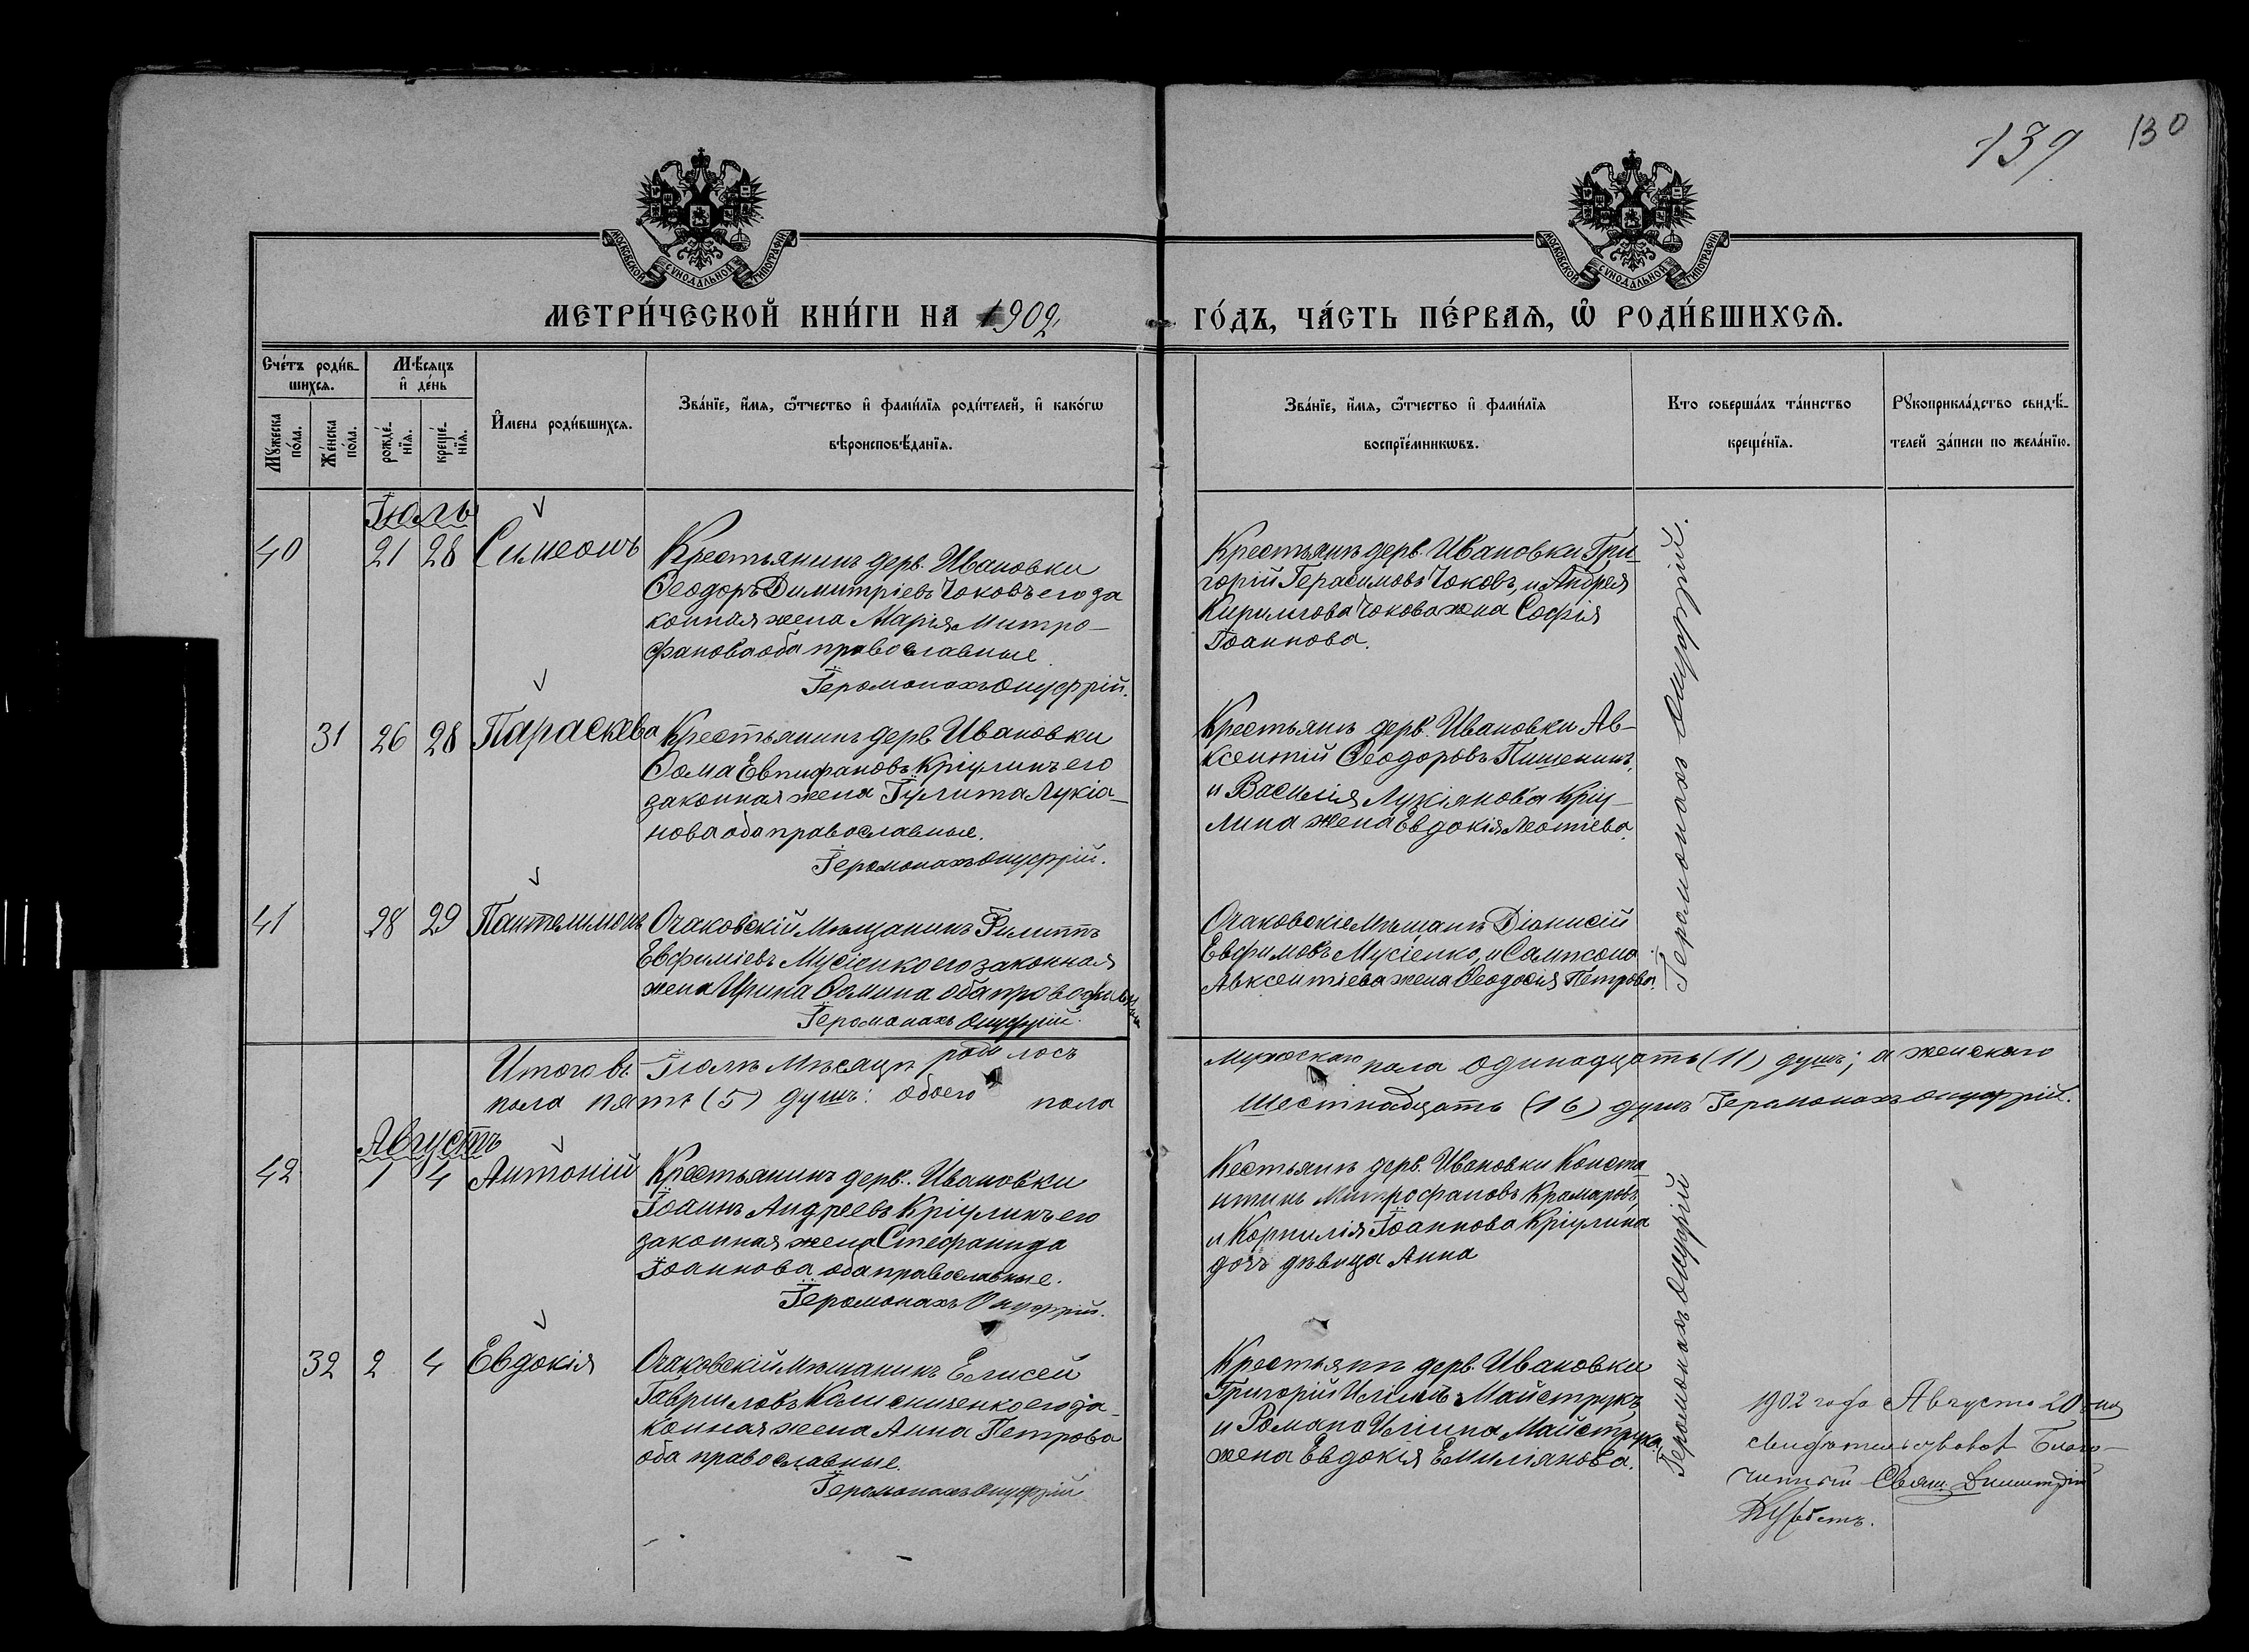 139 130
МОСКОВСКОЙ СѴНОДАЛЬНОЙ ТИПОГРАФІИ
МОСКОВСКОЙ СѴНОДАЛЬНОЙ ТИПОГРАФІИ
МЕТРИ́ЧЕСКОЙ КНИ́ГИ НА 1902 ГО́ДЪ, ЧА́СТЬ ПЕ́РВАѦ, Ѡ҆ РОДИ́ВШИХСѦ.
Сче́тъ роди́в-
шихсѧ.
Мꙋ́жеска
по́ла.
Же́нска
по́ла.
Мѣ́сѧцъ
и҆ де́нь
рожде́-
нїѧ.
креще́-
нїѧ.
И҆мена роди́вшихсѧ.
Зва́нїе, и҆́мѧ, ѻ҆́тчество и҆ фами́лїѧ роди́телей, и҆ како́гѡ
вѣроисповѣ́данїѧ.
Зва́нїе, и҆́мѧ, ѻ҆́тчество и҆ фами́лїѧ
воспрїе́мникѡвъ.
Кто соверша́лъ та́инство
креще́нїѧ.
Рꙋкоприкла́дство свидѣ́-
телей за́писи по жела́нїю.
Іюль
40 21 28 Симеонъ
Крестьянинъ дерв. Ивановки
Ѳеодоръ Димитріевъ Чоковъ его за
конная жена Марія Митро-
фанова оба православные.
Іеромонахъ Онуфрій.
Крестьянъ дерв. Ивановки Гри-
горій Герасимовъ Чоковъ, и Андрея
Кирилова Чокова жена Софія
Іоаннова.
31 26 28 Параскева
Крестьянинъ дерв. Ивановки
Ѳома Евпифановъ Кріулинъ его
законная жена Іулита Лукіа-
нова оба православные.
Іеромонахъ Онуфрій.
Крестьянъ дерв. Ивановки Ав-
ксентій Ѳеодоровъ Пишенинъ,
и Василія Лукіянова Кріу-
лина жена Евдокія Леонтіева.
Іеромонахъ Онуфрій.
41 28 29 Пантелимонъ
Очаковскій Мѣщанинъ Филиппъ
Евфиміевъ Мусіенко его законная
жена Ирина Ѳомина оба
Іеромонахъ Онуфрій.
Очаковскіе Мѣщанъ Діонисій
Евфимовъ Мусіенко, и Сампсона
Авксентіева жена Ѳеодосія Петрова.
Итого въ Іюлѣ Мѣсяцѣ родилось Мужескаго пола одинадцать (11) душъ; а женскаго
пола пять (5) душъ: обоего пола Шестнадцать (16) душъ Іеромонахъ Онуфрій.
Августъ
42 1 4 Антоній
Крестьянинъ дерв. Ивановки
Іоаннъ Андреевъ Кріулинъ его
законная жена Стефанида
Іоаннова оба православные.
Іеромонахъ Онуфрій.
Кестьянъ дерв. Ивановки Конста
нтинъ Митрофановъ Крамаровъ,
и Корнилія Іоаннова Кріулина
дочь дѣвица Анна
Іеромонахъ Онуфрій
32 2 4 Евдокія
Очаковскій мѣщанинъ Елисей
Гавриловъ его за-
конная жена Анна Петрова
оба православные.
Іеромонахъ Онуфрій
Крестьянъ дерв. Ивановки
Григорій Иліинъ Майструкъ,
и Романа Иліина Майструка
жена Евдокія Емиліянова.
1902 года Августа 20 дня
свидѣтельствовалъ Благо-
чинный Свящ. Димитрій